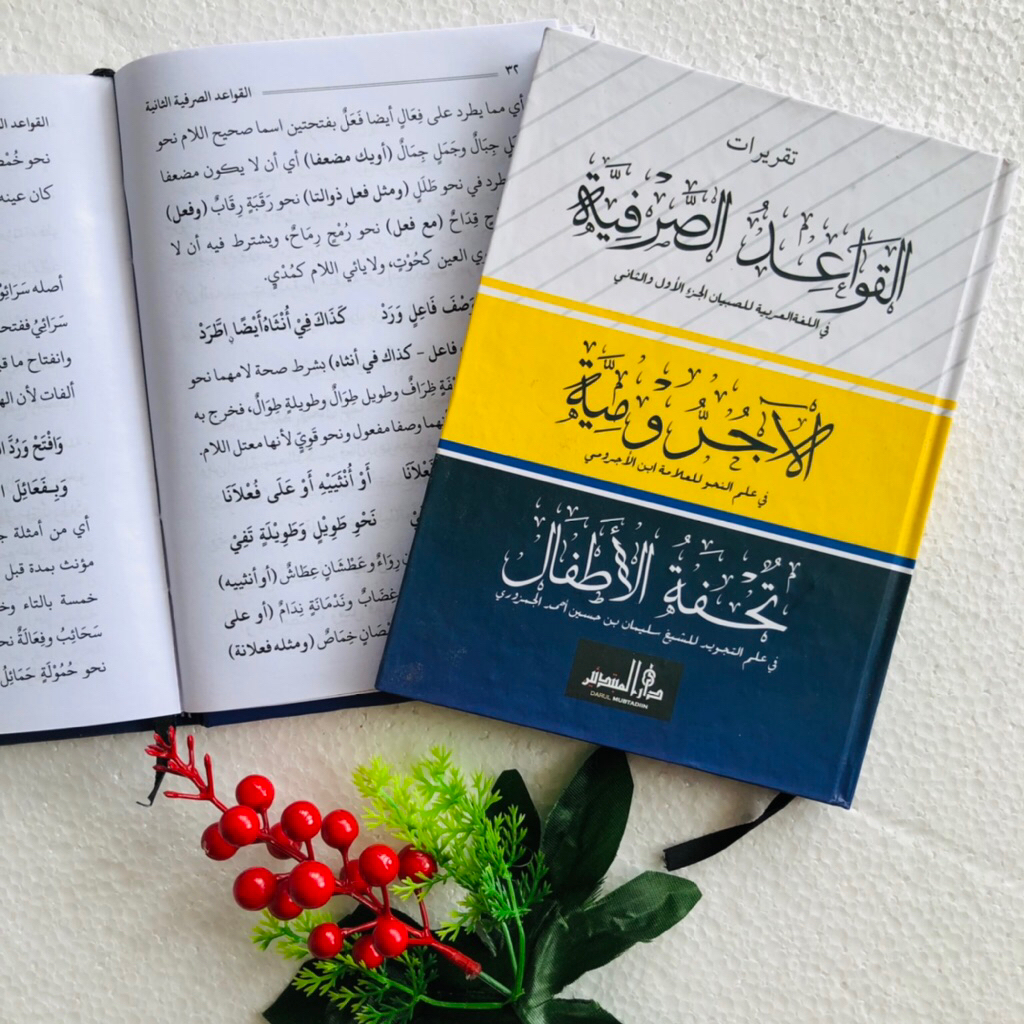 تقريرات
القَوَاعِدُ الصَّرْفِيَّة
في اللغة العربية للصبيان الجزء الأول والثاني
الآجُرُّوْمِيَّة
في علم النحو للعلامة ابن الأجرومي
تُحْفَةُ الأَطْفَال
في علم التجويد للشيخ سليمان بن حسين أحمد الجمزوري
دار المبتدئين
DARUL MUBTADIIN
٣٢
القواعد الصرفية الثانية
أي مما يطرد على فِعَالٍ أيضا فَعَلٌ بفتحتين اسما صحيح اللام نحو
جِبَالٌ وجَمَلٍ جِمَالٌ (أويك مضعفا) أي أن لا يكون مضعفا
في نحو طَلَلٍ (ومثل فعل ذوالتا) نحو رَقَبَةٍ رِقَابٌ (وفعل)
قِدَاحٌ (مع فعل) نحو رُمْحٍ رِمَاحٌ، ويشترط فيه أن لا
العين كحُوْتٍ، ولايائي اللام كمُدْيٍ.
وَصْفَ فَاعِلٍ وَرَدْ كَذَاكَ فِيْ أُنْثَاهُ أَيْضًا اِطَّرَدْ
فاعل - كذاك في أنثاه) بشرط صحة لامهما نحو
ظِرَافٌ وطويل طِوَالٌ وطويلةٍ طِوَالٌ، فخرج به
وصفا مفعول ونحو قَوِيٍّ لأنها معتل اللام.
أَوْ أُنْثَيَيْهِ أَوْ عَلَى فُعْلَانَا
نَحْوِ طَوِيْلٍ وَطَوِيْلَةٍ تَفِيْ
رِوَاءٌ وعَطْشَانٍ عِطَاشٌ (أو أنثييه)
غِضَابٌ ونَدْمَانَةٍ نِدَامٌ (أو على
خِمَاصٌ (ومثله فعلانة)
القواعد
نحو
كان عينه
أصله
وانفتاح ما
ألفات لأن
وَافْتَحْ وَرُدَّ
وَبِفَعَائِلَ
أي من أمثلة
مؤنث بمدة قبل
خمسة بالتاء
سَحَائِبُ وفِعَالَةٌ
نحو حُمُوْلَةٍ حَمَائِلُ